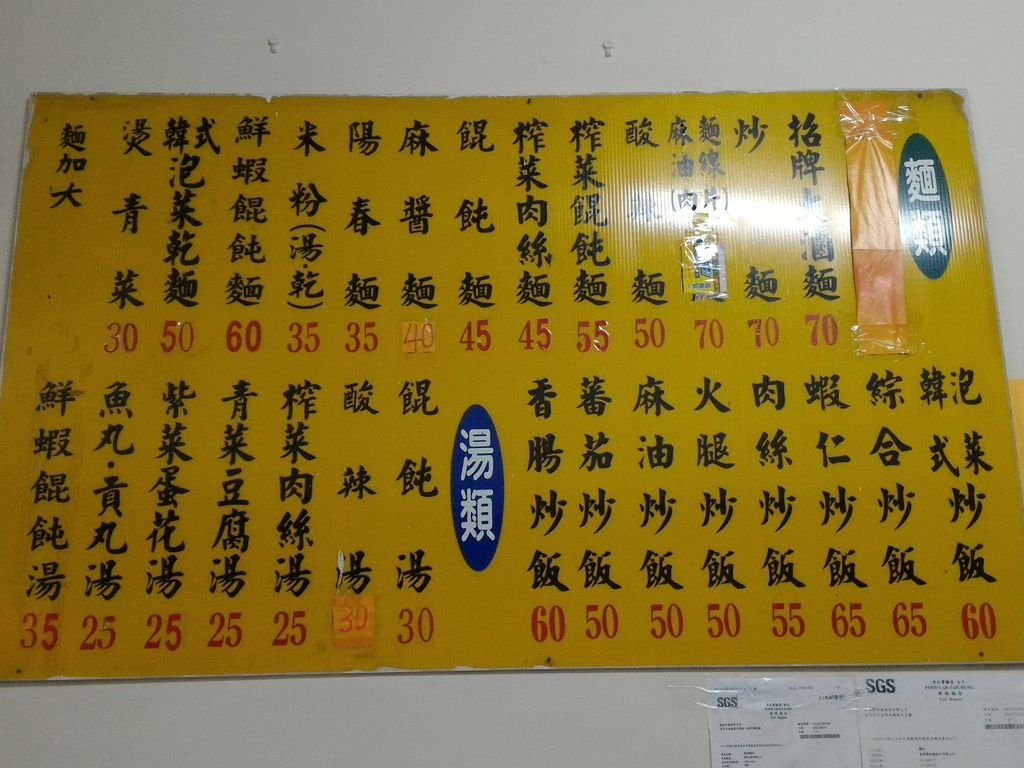 麵類
招牌大滷麵 70
炒麵 70
麻油麵線(肉片) 70
酸辣麵 50
榨菜餛飩麵 55
榨菜肉絲麵 45
餛飩麵 45
麻醬麵 40
陽春麵 35
米粉(湯.乾) 35
鮮蝦餛飩麵 60
韓式泡菜乾麵 50
燙青菜 30
麵加大
韓式泡菜炒飯 60
綜合炒飯 65
蝦仁炒飯 65
肉絲炒飯 55
火腿炒飯 50
麻油炒飯 50
蕃茄炒飯 50
香腸炒飯 60
湯類
餛飩湯 30
酸辣湯 30
榨菜肉絲湯 25
青菜豆腐湯 25
紫菜蛋花湯 25
魚丸.貢丸湯 25
鮮蝦餛飩湯 35
SGS
SGS